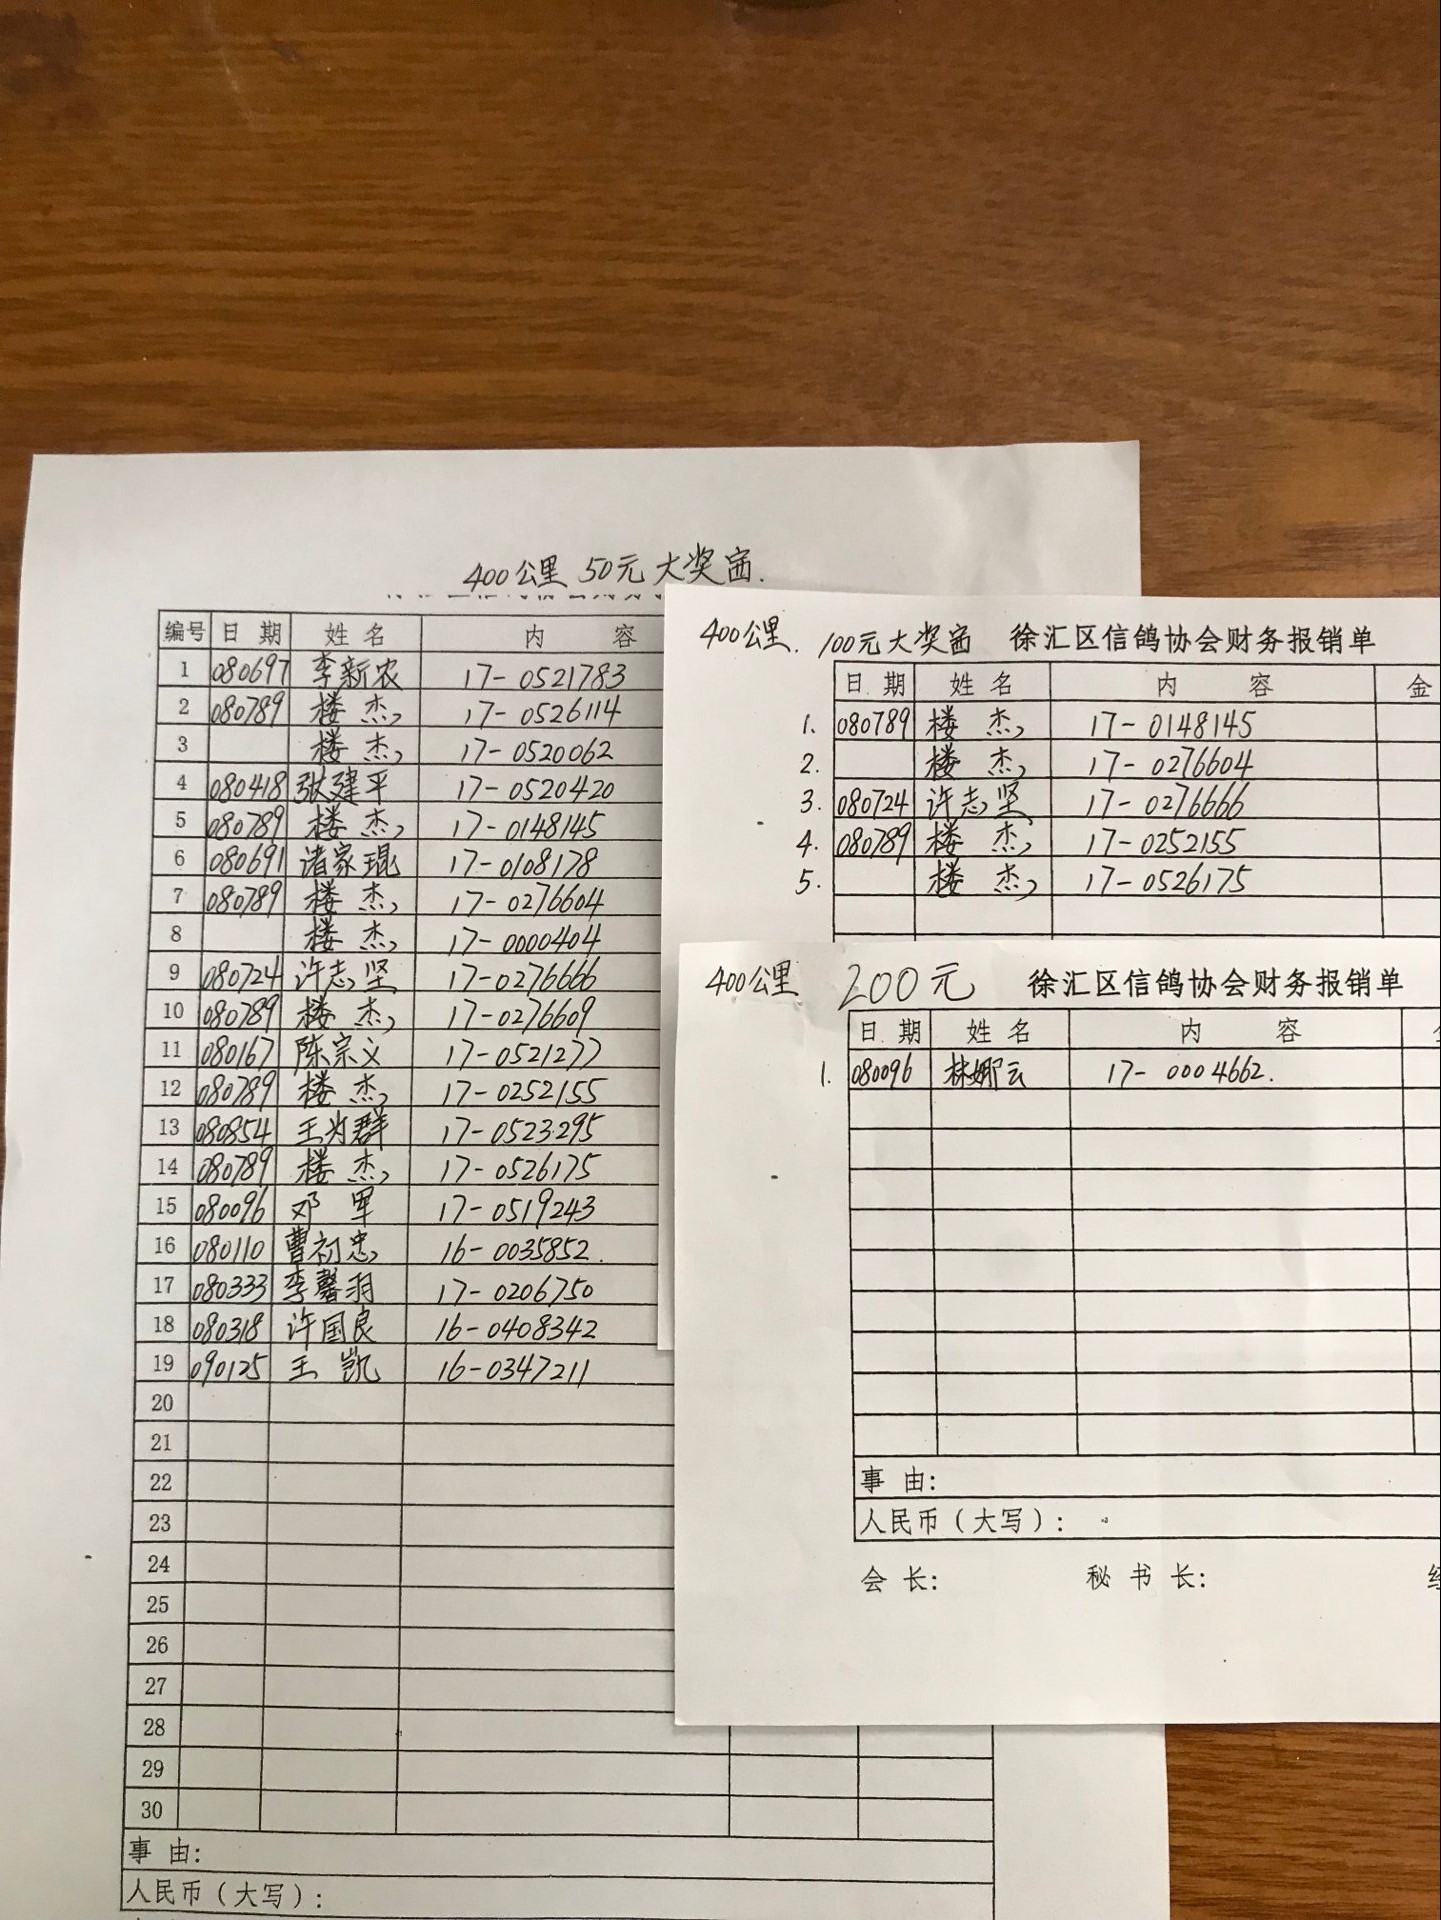 400公里 50元大奖亩.
编号 日 期 姓 名 内 容
1 080697 李新农 17-0521783
2 080789 楼 杰 17-0526114
3 楼 杰 17-0520062
4 080418 张建平 17-0520420
5 080789 楼 杰 17-0148145
6 080691 诸家琨 17-0108178
7 080789 楼 杰 17-0276604
8 楼 杰 17-0000404
9 080724 许志坚 17-0276666
10 080789 楼 杰 17-0276609
11 080167 陈宗义 17-0521277
12 080789 楼 杰 17-0252155
13 080854 王为群 17-0523295
14 080789 楼 杰 17-0526175
15 080096 邓 军 17-0519243
16 080110 曹初忠 16-0035852.
17 080333 李馨羽 17-0206750
18 080318 许国良 16-0408342
19 090125 王 凯 16-0347211
20
21
22
23
24
25
26
27
28
29
30
事 由:
人民币(大写):
400公里. 100元大奖亩 徐汇区信鸽协会财务报销单
日 期 姓 名 内 容 金
1. 080789 楼 杰 17-0148145
2. 楼 杰 17-0276604
3. 080724 许志坚 17-0276666
4. 080789 楼 杰 17-0252155
5. 楼 杰 17-0526175
400公里 200元 徐汇区信鸽协会财务报销单
日 期 姓 名 内 容
1. 080096 林娜云 17-0004662.
事 由:
人民币(大写):
会 长: 秘 书 长: